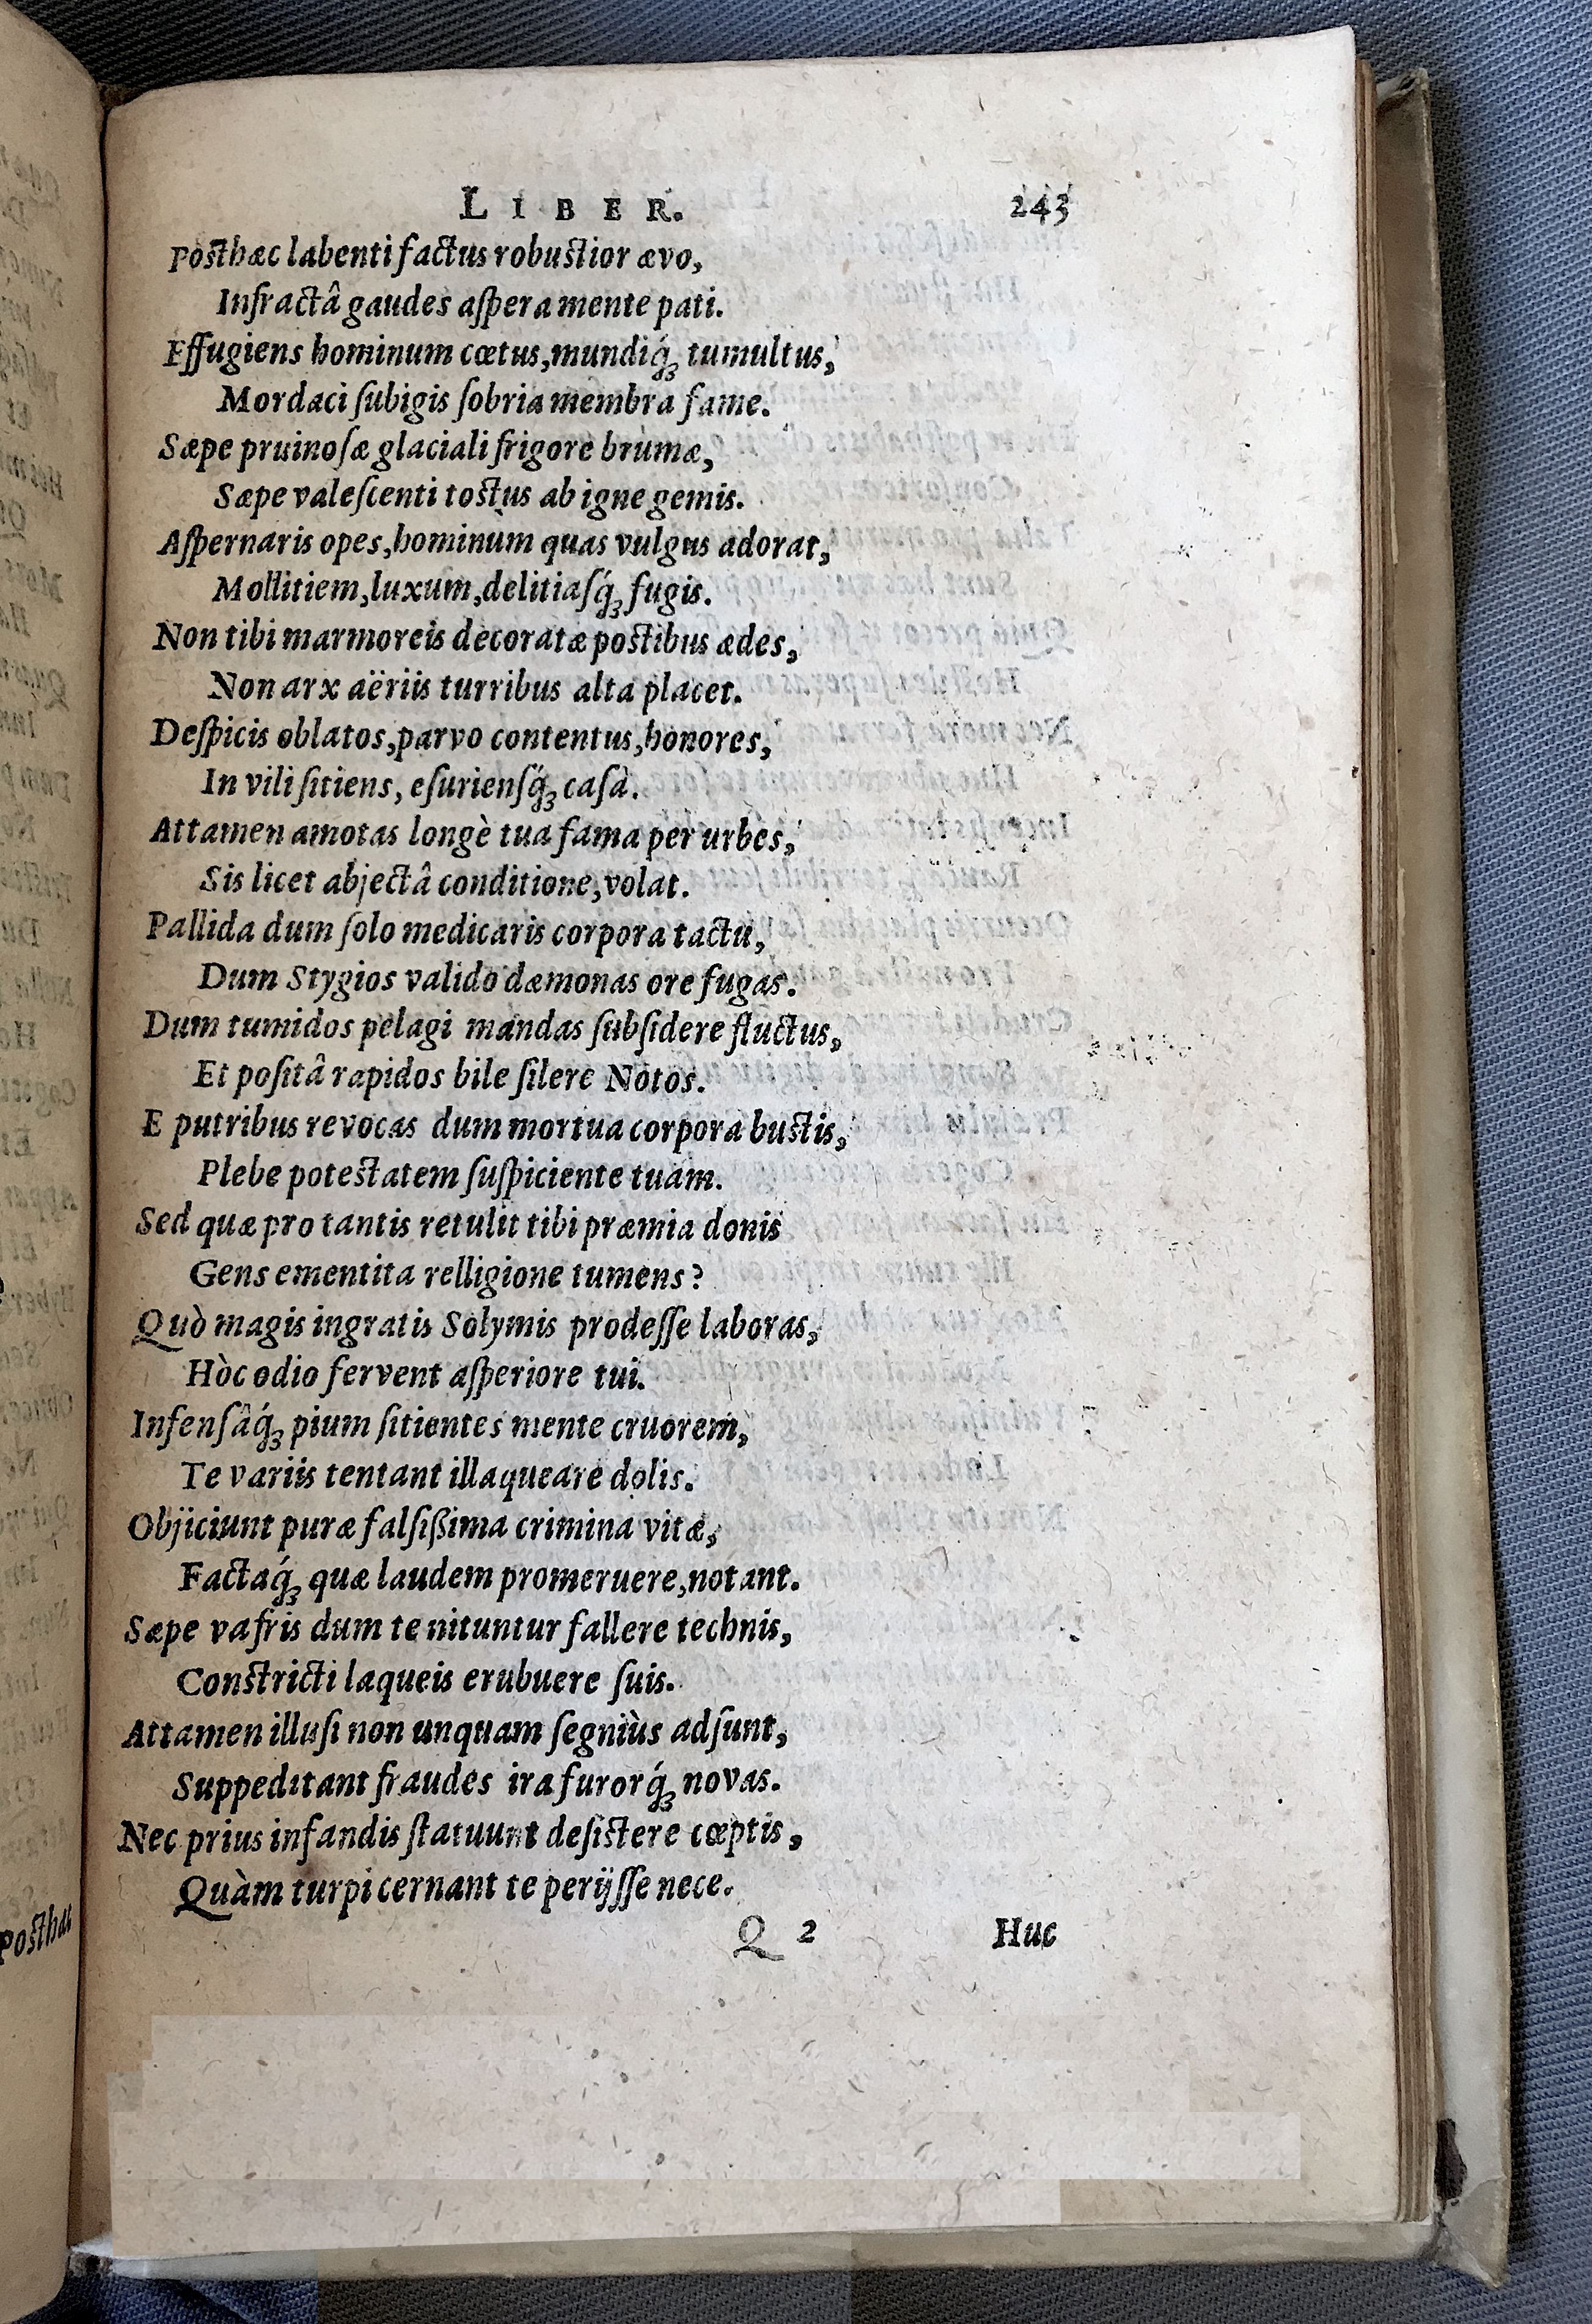 LIBER. 243
Posthæc labenti factus robustior ævo,
Infractâ gaudes aſpera mente pati.
Effugiens hominum cœtus, mundiq́ꝫ tumultus,
Mordaci ſubigis ſobria membra fame.
Sæpe pruinoſæ glaciali frigore brumæ,
Sæpe valeſcenti tostus ab igne gemis.
Aſpernaris opes, hominùm quas vulgus adorat,
Mollitiem, luxum, delitiaſq́ꝫ fugis.
Non tibi marmoreis decoratæ postibus ædes,
Non arx aëriis turribus alta placet.
Deſpicis oblatos, parvo contentus, honores,
In vili ſitiens, eſurienſq́ꝫ caſà.
Attamen amotas longè tua fama per urbes,
Sis licet abjectâ conditione, volat.
Pallida dum ſolo medicaris corpora tactu,
Dum Stygios valido dæmonas ore fugas.
Dum tumidos pelagi mandas ſubſidere fluctus,
Et poſitâ rapidos bile ſilere Notos.
E putribus revocas dum mortua corpora bustis,
Plebe potestatem ſuſpiciente tuam.
Sed quæ pro tantis retulit tibi præmia donis
Gens ementita relligione tumens?
Quò magis ingratis Solymis prodeſſe laboras,
Hòc odio fervent aſperiore tui.
Infenſâq́ꝫ pium ſitientes mente cruorem,
Te variis tentant illaqueare dolis.
Objiciunt puræ falſißima crimina vitæ,
Factaq́ꝫ quæ laudem promeruere, notant.
Sæpe vafris dum te nituntur fallere technis,
Constricti laqueis erubuere ſuis.
Attamen illuſi non unquam ſegniùs adſunt,
Suppeditant fraudes ira furorq́ꝫ novas.
Nec prius infandis ſtatuunt deſistere cœptis,
Quàm turpi cernant te perijſſe nece.
Q 2 Huc
Posthæc